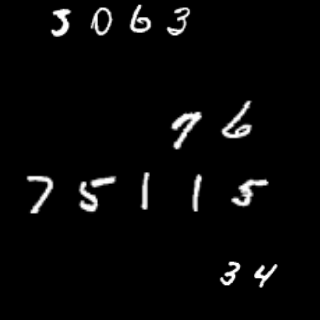 5063
76
75115
34